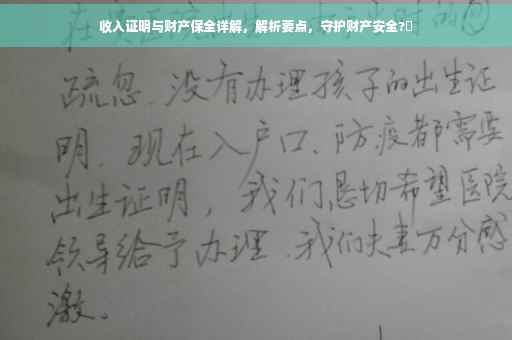 收入证明与财产保全详解，解析要点，守护财产安全?
疏忽.没有办理孩子的出生证
明.现在入户口、防疫都需要
出生证明，我们恳切希望医院
领导给予办理.我们夫妻万分感
激。